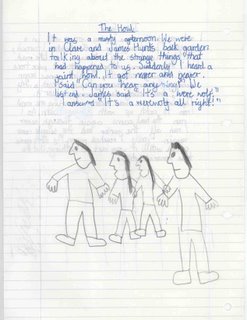 The Howl
It was a misty afternoon. We were
in Clare and James Hunts back garden
talking about the strange things that
had happened to us. Suddenly I heard a
faint howl. It got nearer and nearer.
"Said "Can you hear anything" We
listened. James said "It's" a "were wolf"
I answerd "It's a werewolf all right!"